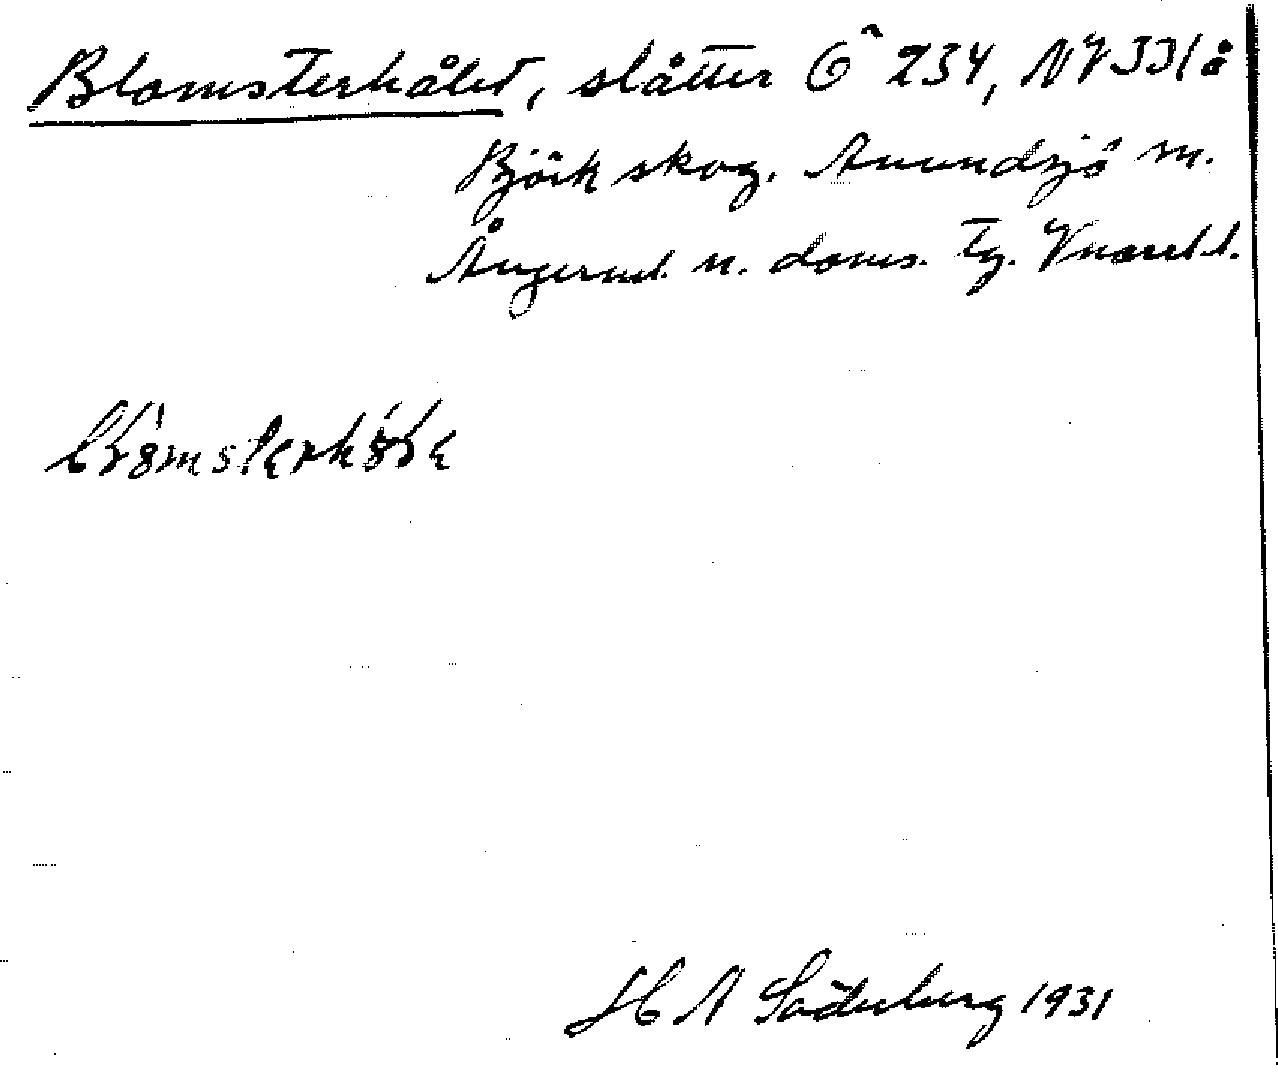 Blomsterhålet, slåtter G^ 234, NV 331 å
Björk skog. Anundsjö sn.
Ångerml. n. doms. Tg. V
blomsterhåłɛ
H A Söderberg 1931